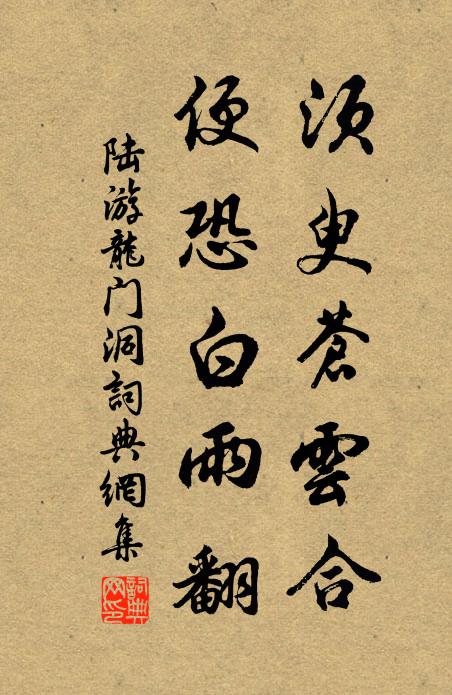 須臾蒼雲合
便恐白雨翻
陆游龍门洞詞典網集
詞典网印